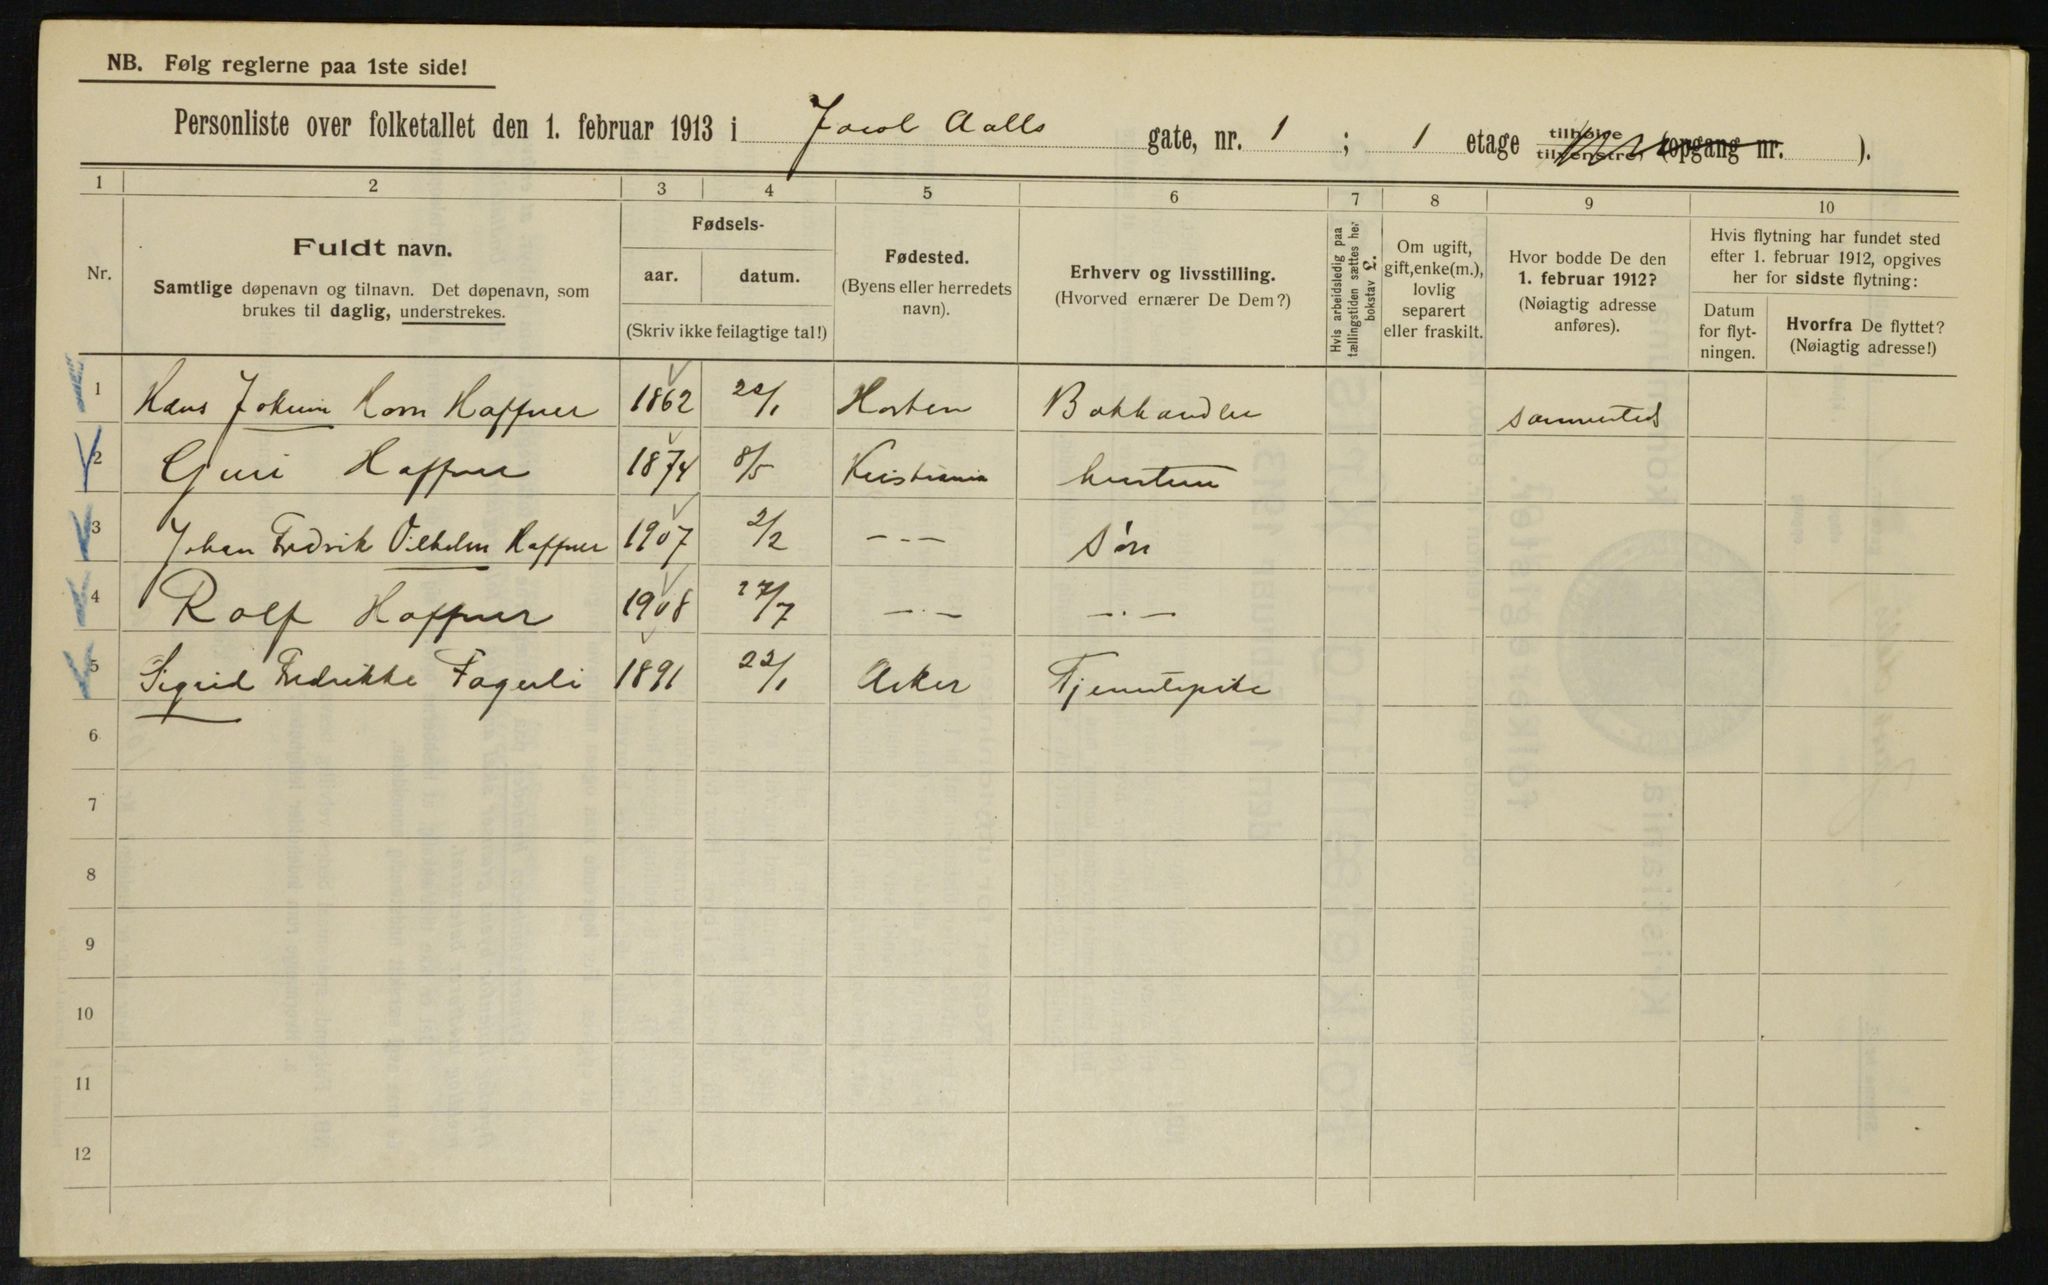 NB. Følg reglerne paa 1ste side!
Personliste over folketallet den 1. februar 1913 i Jacob Aalls gate, nr. 1 ; 1 etage tilhøire tilvenstre, (opgang nr. ).
1 2 3 4 5 6 7 8 9 10
Nr.
Fuldt navn.
Samtlige døpenavn og tilnavn. Det døpenavn, som
brukes til daglig, understrekes.
Fødsels-
aar. datum.
(Skriv ikke feilagtige tal!)
Fødested.
(Byens eller herredets
navn).
Erhverv og livsstilling.
(Hvorved ernærer De Dem?)
Hvis arbeidsledig paa
tællingstiden sættes her
bokstav L.
Om ugift,
gift, enke(m.),
lovlig
separert
eller fraskilt.
Hvor bodde De den
1. februar 1912?
(Nøiagtig adresse
anføres).
Hvis flytning har fundet sted
efter 1. februar 1912, opgives
her for sidste flytning:
Datum
for flyt-
ningen.
Hvorfra De flyttet?
(Nøiagtig adresse!)
1 Hans Jokum Horn Haffner 1862 22/1 Horten Bokhandler sammesteds
2 Guri Haffner 1874 8/5 Kristiania hustru
3 Johan Fredrik Vilhelm Haffner 1907 2/2 — - — søn
4 Rolf Haffner 1908 27/7 — - — — - —
5 Sigrid Fredrikke Fagerli 1891 22/1 Asker Tjenestepike
6
7
8
9
10
11
12